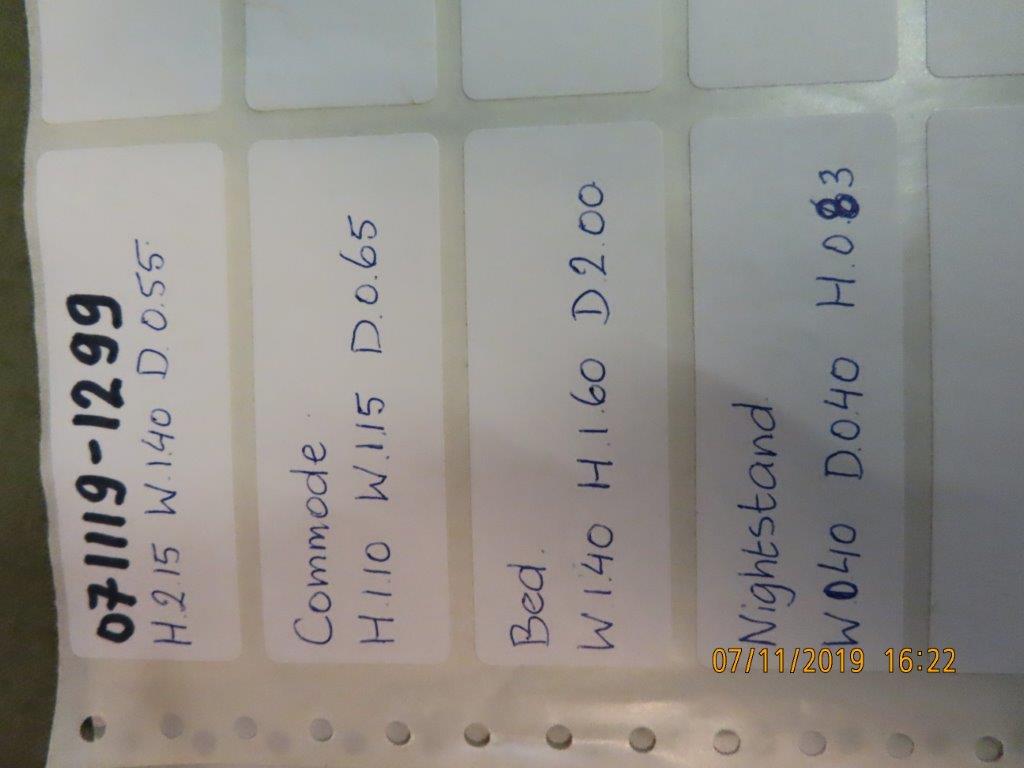 071119-1299
H.2.15 W.1.40 D.0.55
Commode
H.1.10 W.1.15 D.0.65
Bed.
W.1.40 H.1.60 D.2.00
Nightstand
W.0.40 D.0.40 H.0.83
07/11/2019 16:22